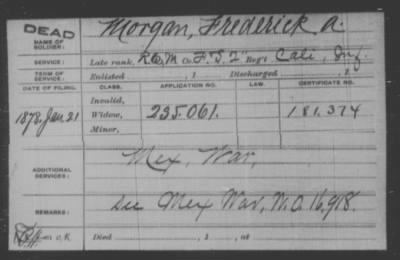 DEAD
NAME OF SOLDIER: Morgan, Frederick A.
SERVICE: Late rank, R.Q.M. Co. F.&S. 2" Reg't Cali, Inf.
TERM OF SERVICE: Enlisted , 1 Discharged , 1
DATE OF FILING. CLASS. APPLICATION NO. LAW. CERTIFICATE NO.
Invalid,
1878. Jan. 21 Widow, 235.061. 181.374
Minor,
ADDITIONAL SERVICES: Mex, War,
REMARKS: See Mex War, W.O. 16,918.
Died , 1 , at